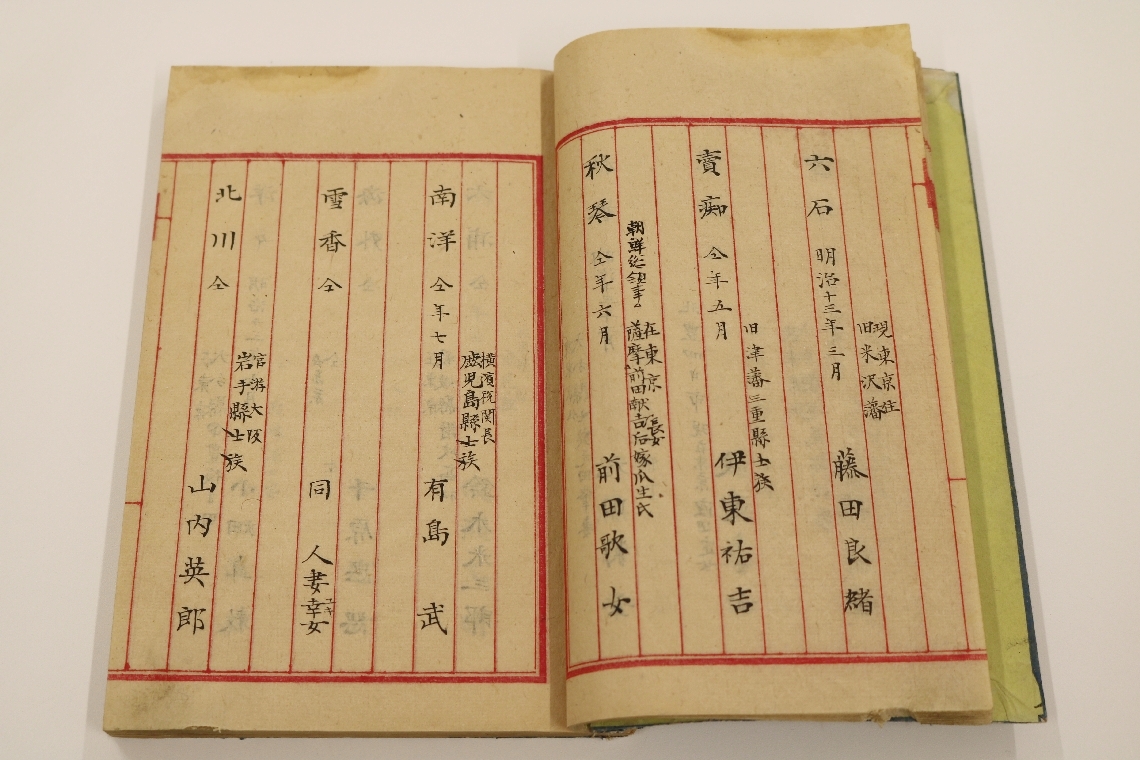 六石 明治十三年三月 藤田良緒
現東京住
旧米沢藩
賣痴 仝年五月 伊東祐吉
旧津藩三重縣士族
秋琴 仝年六月 前田歌女
朝鮮総領事
在東京
薩摩前田献吉 長女
后嫁瓜生氏
南洋 仝年七月 有島 武
横濱税関長
鹿児島縣士族
雪香 仝 同 人妻幸女
ユキ
北川 仝 山内英郎
官游大阪
岩手縣士族